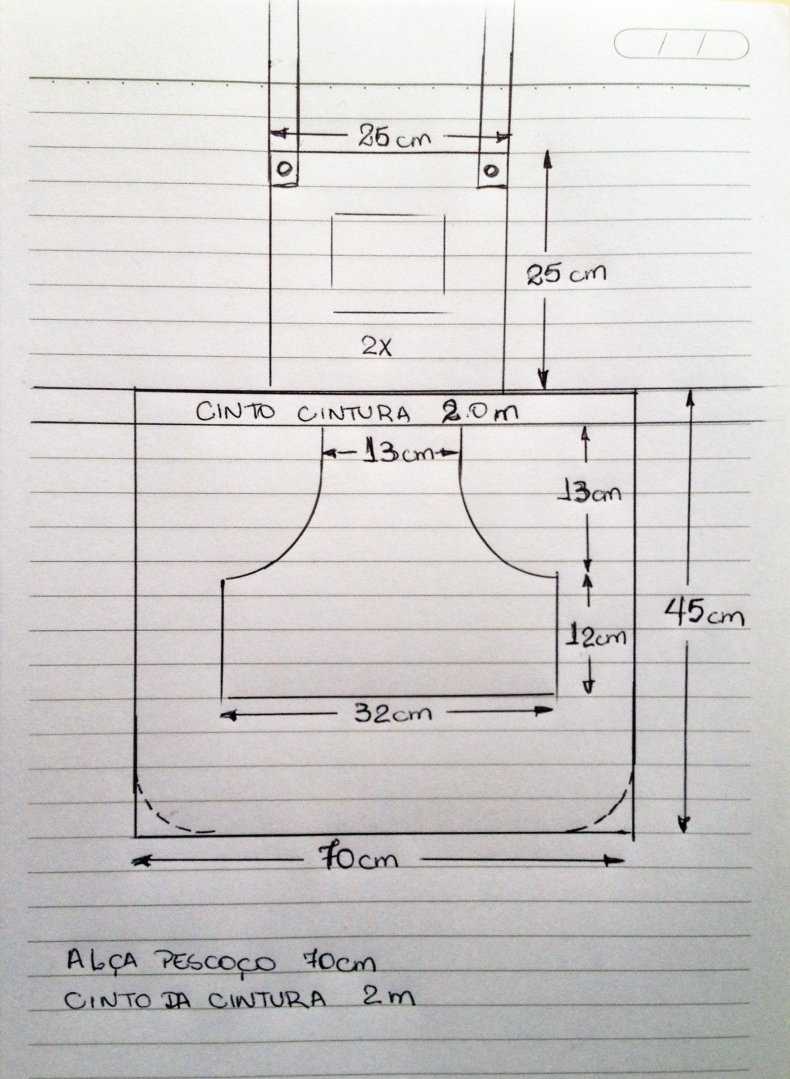 / /
25cm
25cm
2x
CINTO CINTURA 2.0m
13cm
13cm
45cm
12cm
32cm
70cm
ALÇA PESCOÇO 70cm
CINTO DA CINTURA 2m